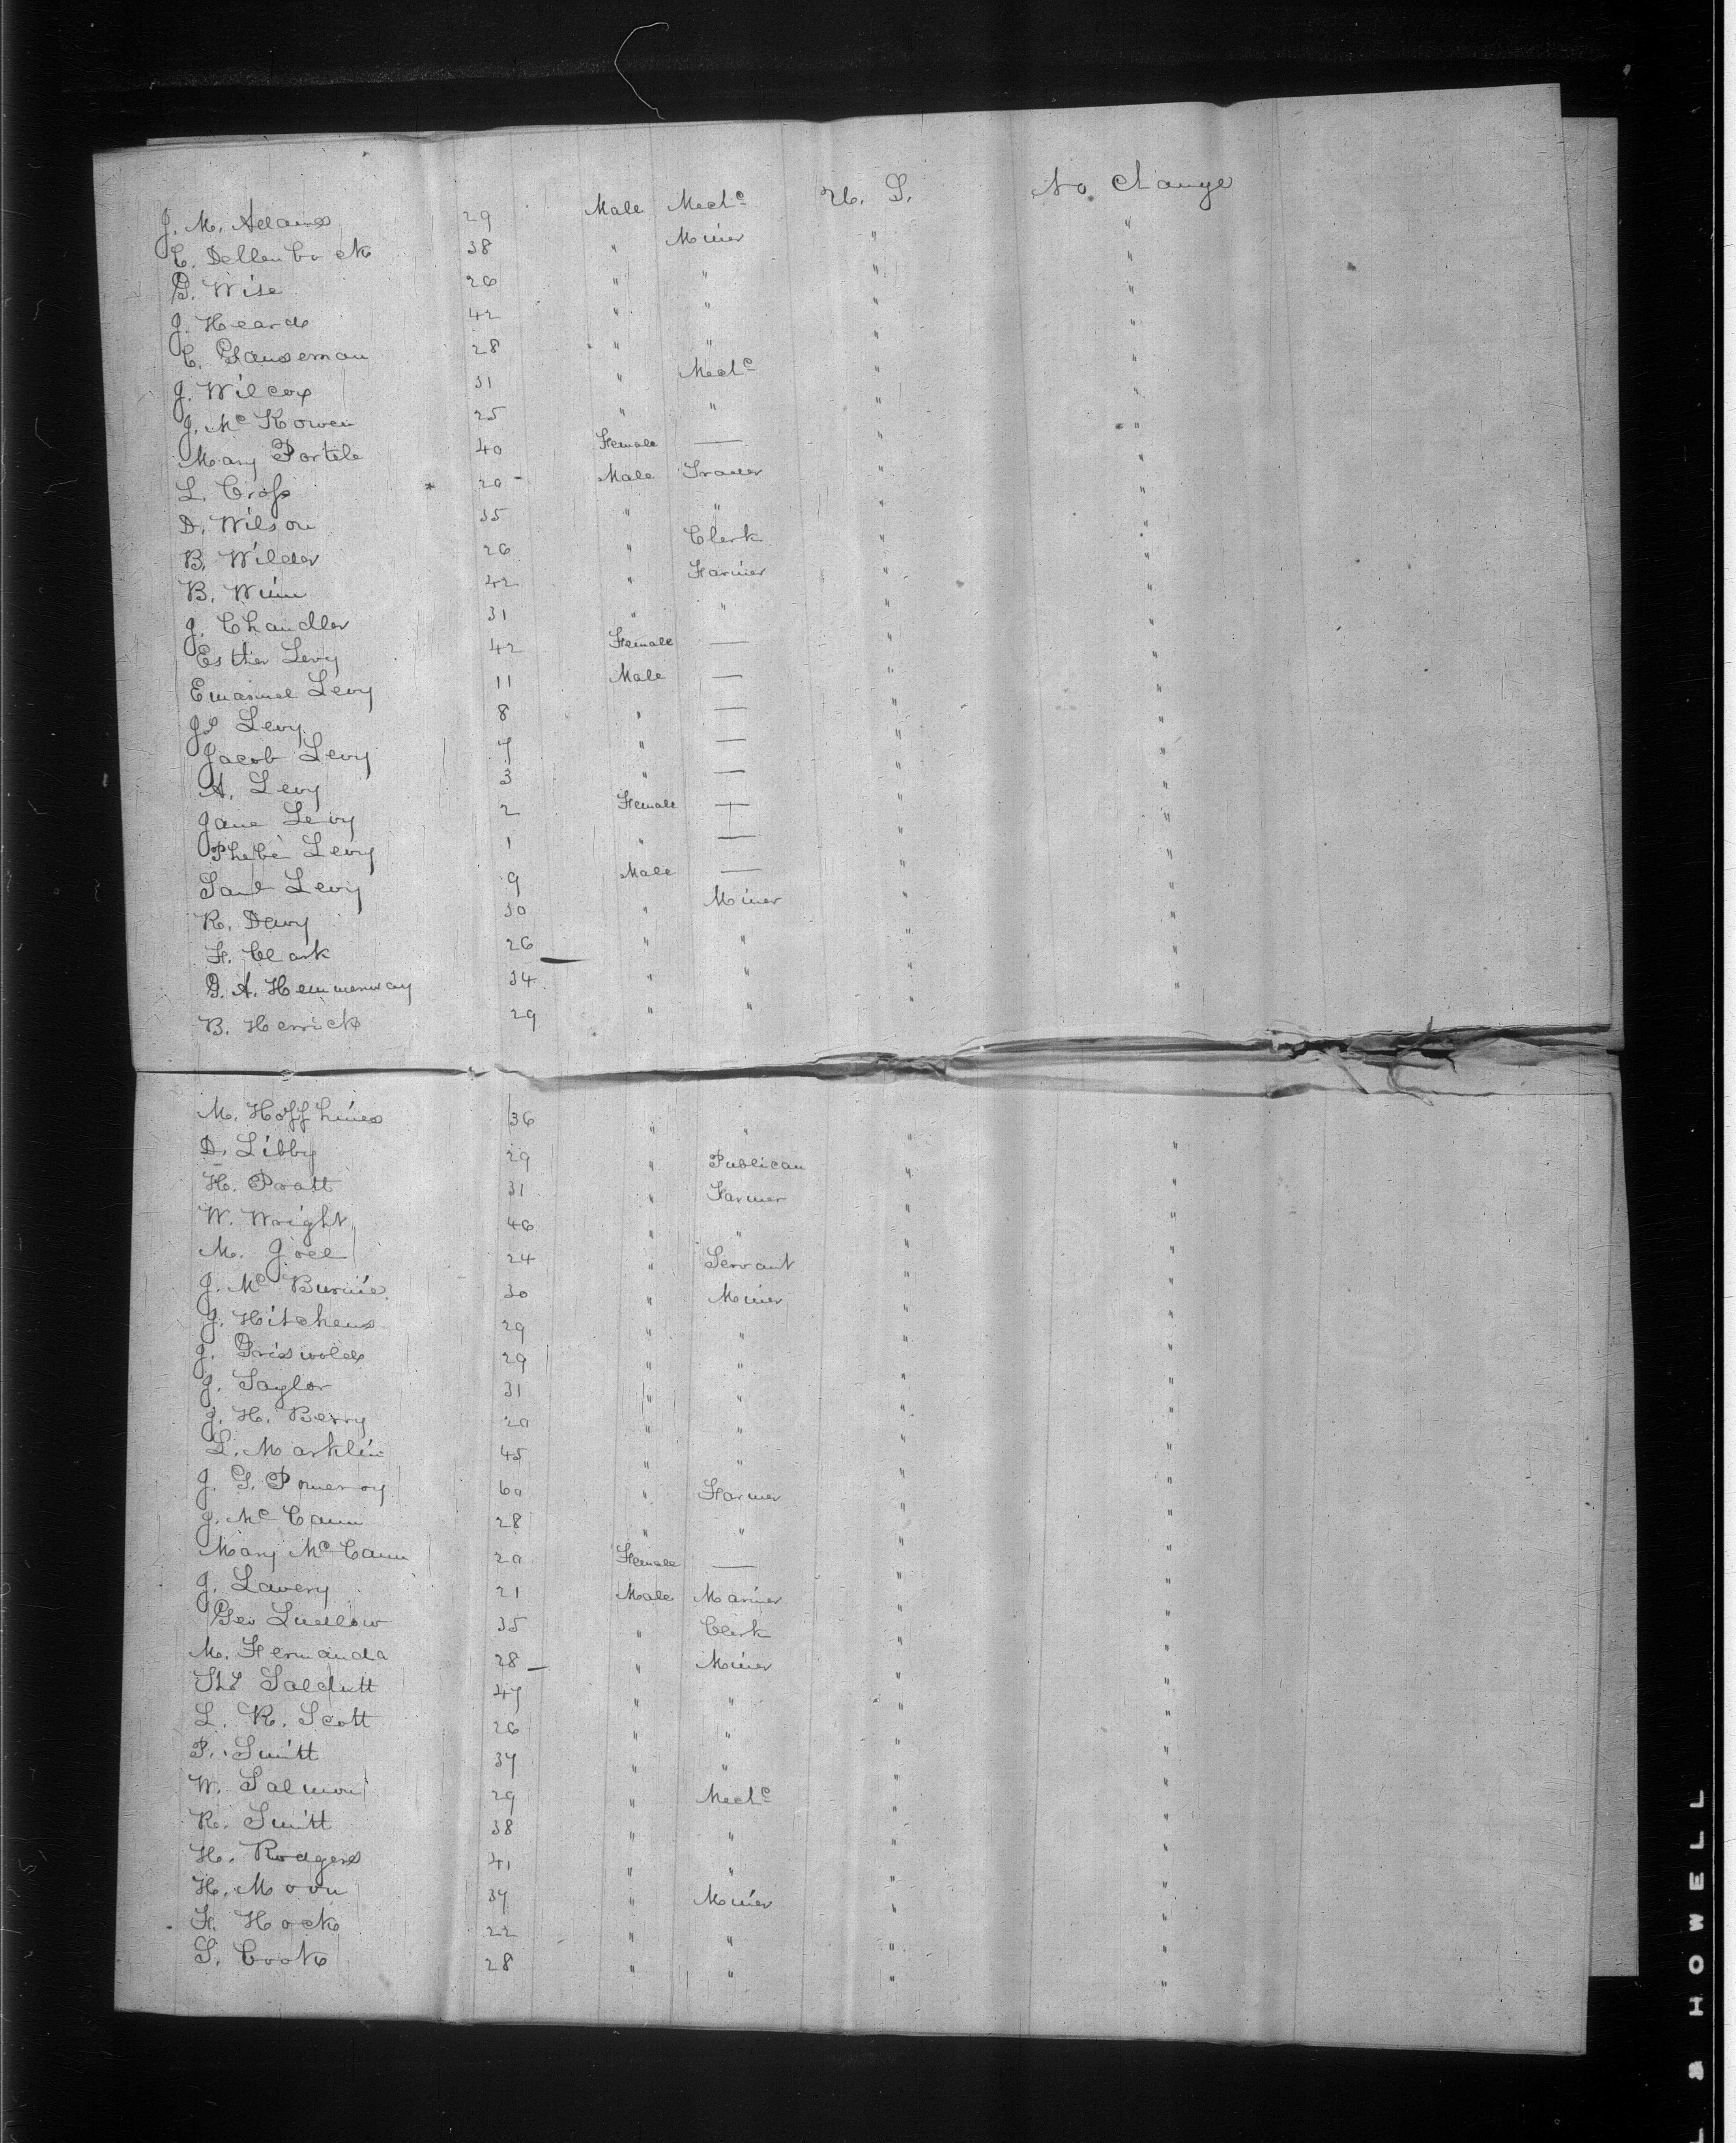 J. M. Adams 29 Male Mechc U. S. No Change
C. Dellenback 38 " Miner " "
G. Wise 26 " " " "
J. Heard 42 " " " "
C. Ganseman 28 " " " "
J. Wilcox 31 " Mechc " "
J. Mc Kowen 25 " " " "
Mary Portele 40 Female — " "
L. Cross 20 Male Trader " "
D. Wilson 35 " " " "
B. Wilder 26 " Clerk " "
B. Winn 42 " Farmer " "
J. Chandler 31 " " " "
Esther Levy 42 Female — " "
Emanuel Levy 11 Male — " "
Js Levy 8 " — " "
Jacob Levy 7 " — " "
A. Levy 3 " — " "
Jane Levy 2 Female — " "
Phebe Levy 1 " — " "
Saul Levy 9 Male — " "
R. Davy 30 " Miner " "
F. Clark 26 " " " "
G. A. Hemmenway 34 " " " "
B. Herrick 29 " "
M. Hoffhines 36 " " " "
D. Libby 29 " Publican " "
H. Pratt 31 " Farmer " "
W. Wright 46 " " " "
M. Joel 24 " Servant " "
J. Mc Burnie 30 " Miner " "
J. Hitchens 29 " " " "
J. Griswold 29 " " " "
J. Taylor 31 " " " "
J. H. Berry 20 " " " "
L. Marklin 45 " " " "
J. G. Pomeroy 60 " Farmer " "
J. Mc Cann 28 " " " "
Mary Mc Cann 20 Female — " "
J. Lavery 21 Male Mariner " "
Geo Ludlow 35 " Clerk " "
M. Fernanda 28 " Miner " "
47 " " " "
L. R. Scott 26 " " " "
P. Smitt 37 " " " "
W. Salmon 29 " Mechc " "
R. Smitt 38 " " " "
H. Rodgers 41 " " " "
H. Moon 37 " Miner " "
F. Hock 22 " " " "
S. Cook 28 " " " "
L & HOWELL